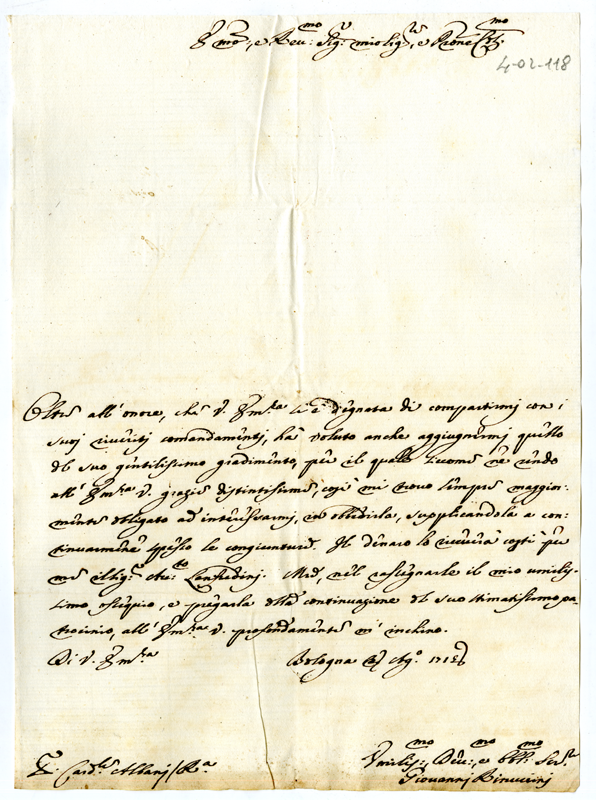 Emo, e Reu:mo Sigr mio Sigr, e Prone Col:mo
4-02-118
Oltre all' onore, che V. Emza si è degnata di compartirmi con i
suoj riueriti comandamenti, ha voluto anche aggiugnermi quello
del suo gentilissimo gradimento, per il quale siccome ne rendo
all' Emza V. grazie distintissime, così mi trouo sempre maggior-
mente obligato ad interessarmi, in obbidirla, supplicandola a con-
tinuarmene spesso le congiunture. Il denaro lo riceuerà costì per
me il Sigr Lanfredinj. Med, nel rassegnarle il mio umilis-
simo ossequio, e pregarla della continuazione del suo stimatissimo pa-
trocinio, all' Emza V. profondamente m' inchino.
Di V. Emza Bologna Ago. 1715
Umilis:mo Deu:mo e Obb:mo Serre
Giovannj Rinuccinj
E. Cardle Albanj / Ra